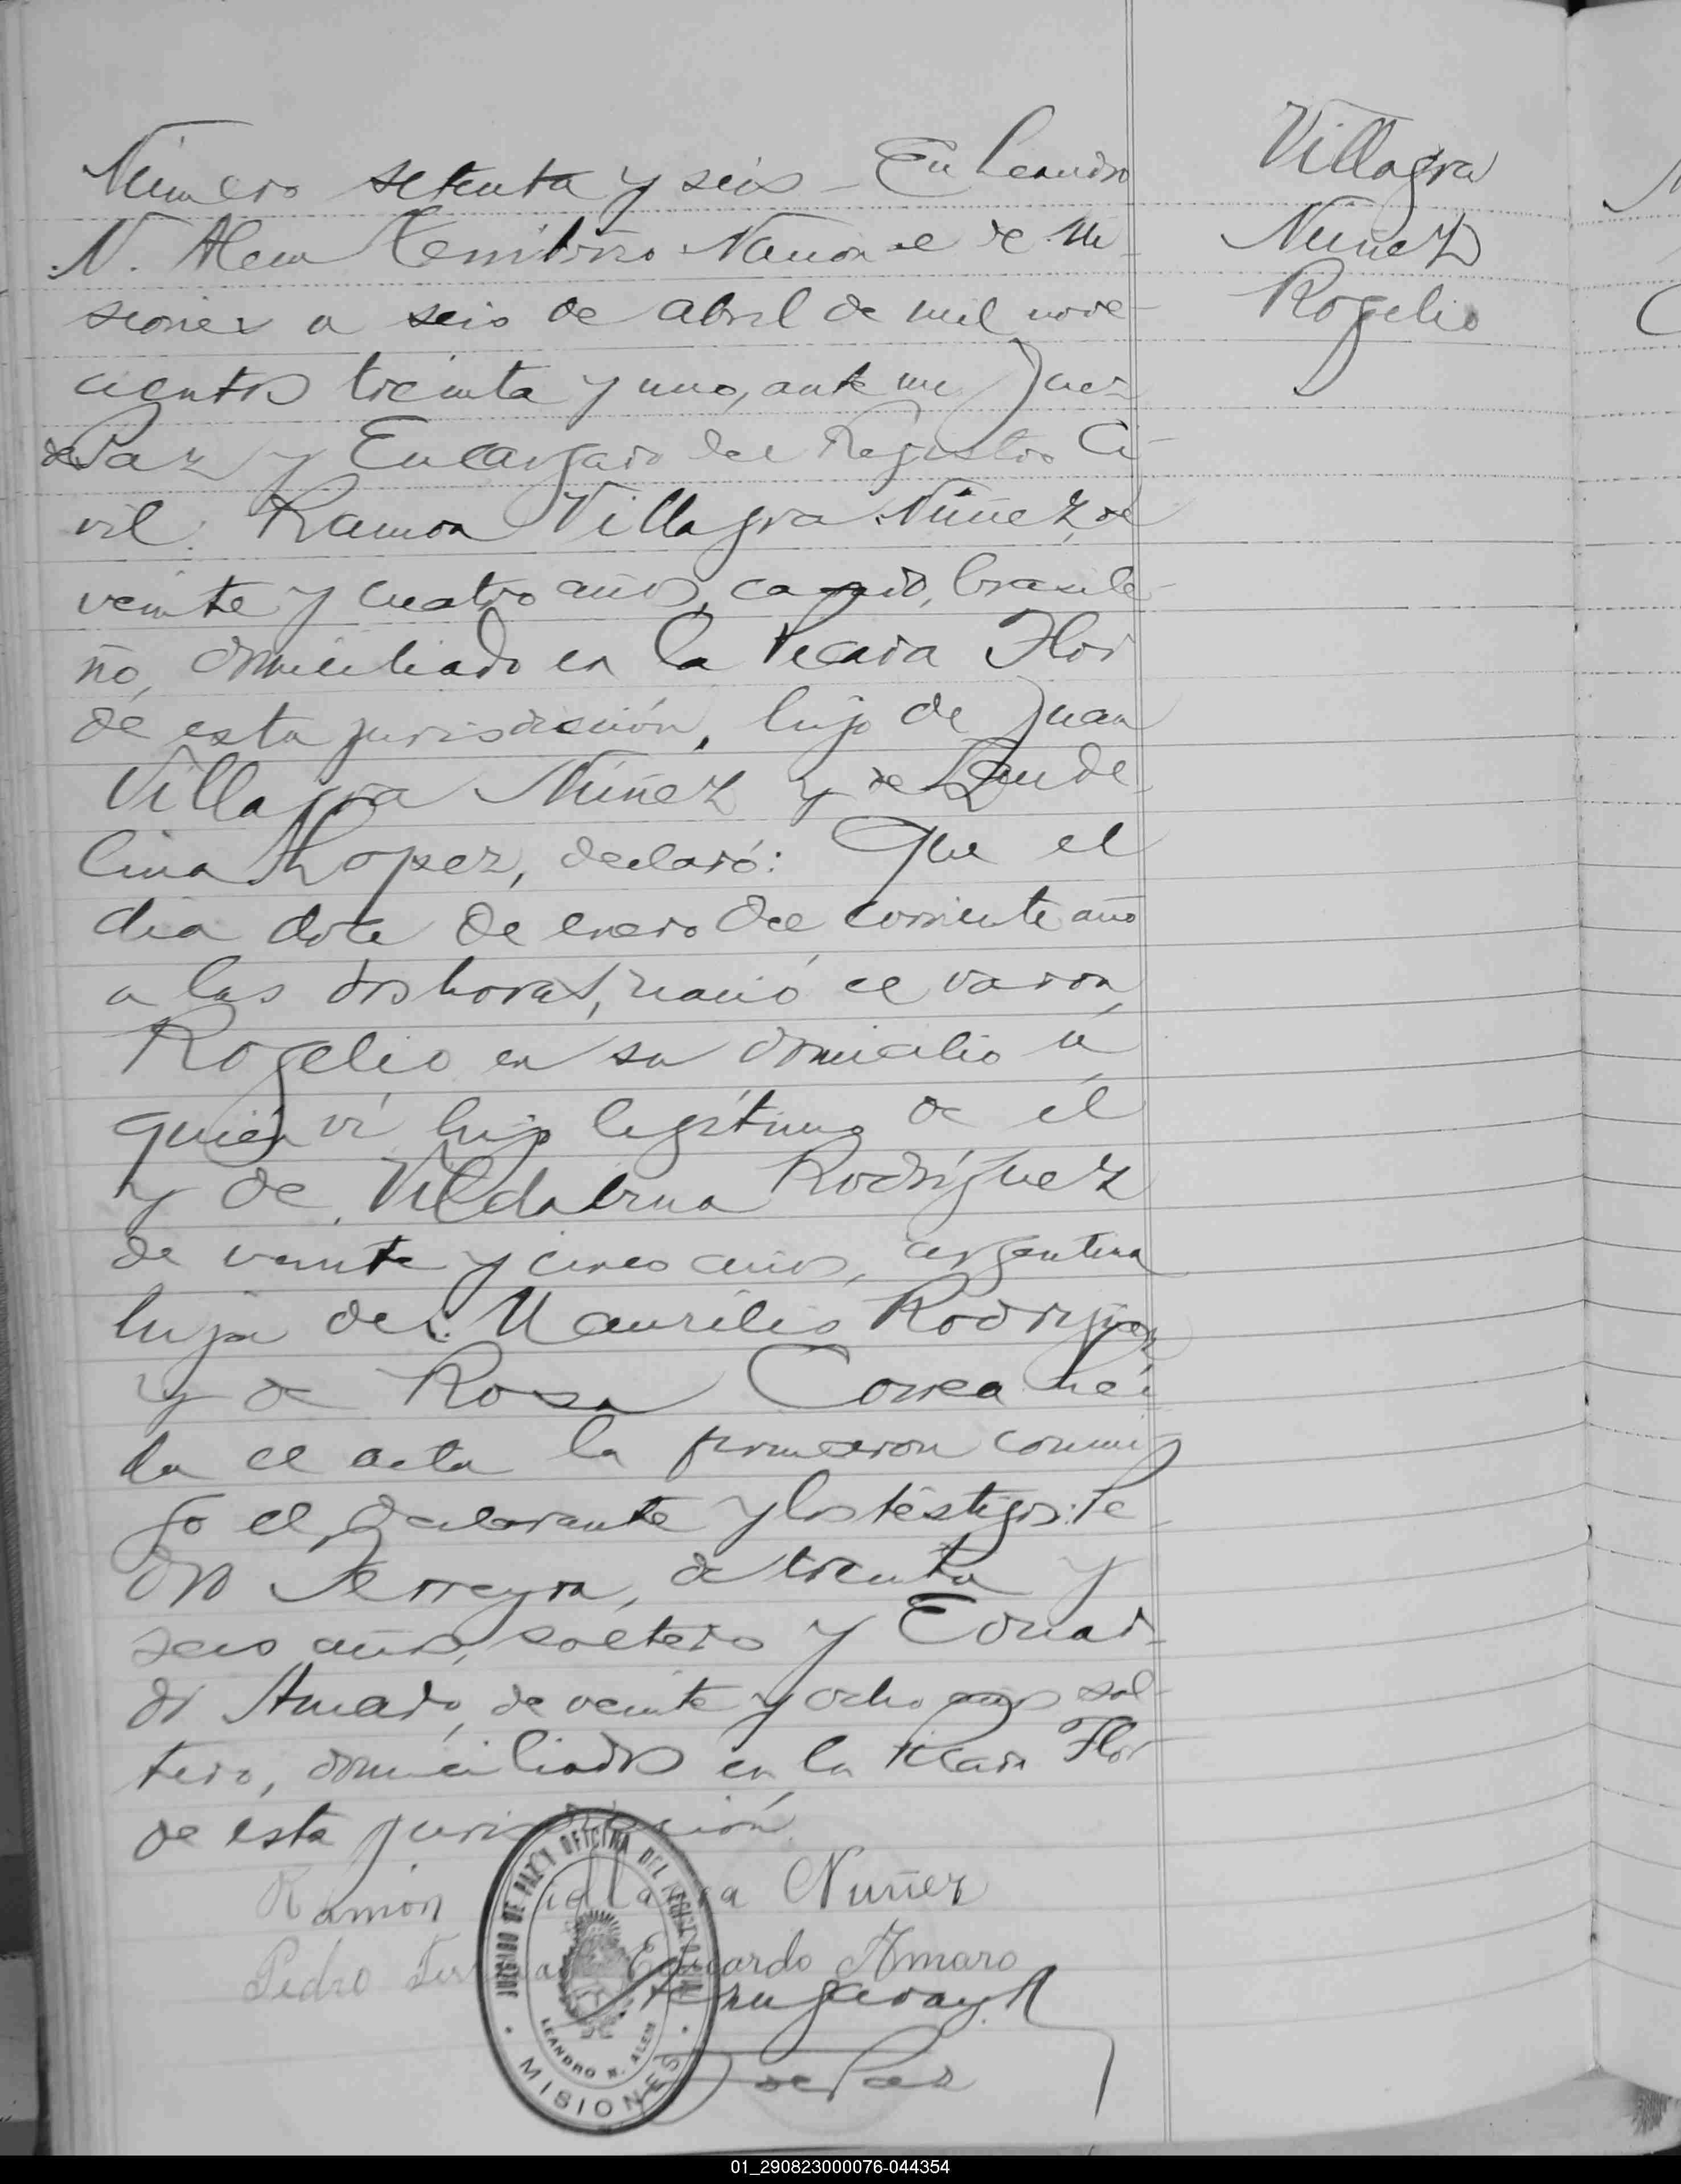 Número setenta y seis - En Leandro
N. Alem Territorio Nacional de Mi-
siones a seis de abril de mil nove-
cientos treinta y uno, ante mi Juez
de Paz y Encargado del Registro Ci-
vil. Ramon Villagra Núñez, de
veinte y cuatro años, casado, brasile-
ño, domiciliado en la Picada Flor
de esta jurisdicción, hijo de Juan
Villagra Núñez y de
Lopez, declaró: Que el
dia doce de enero del corriente año
a las dos horas, nació el varon,
Rogelio en su domicilio a
quién vi hijo legítimo de el
y de Rodríguez
de veinte y cinco años, argentina
hija de: Maurilio Rodriguez,
y de Rosa Correa. Leí-
da el acta la firmaron conmi-
go el declarante y los testigos: Pe-
dro Ferreyra, de treinta y
seis años, soltero y Eduar-
do Amaro, de veinte y ocho años sol-
tero, domiciliados en la Picada Flor
de esta jurisdicción.
Ramón Villagra Nuñez
Pedro Eduardo Amaro
de Paz
JUZGADO DE PAZ Y OFICINA DEL REGISTRO CIVIL
LEANDRO N. ALEM
MISIONES
Villagra
Nuñez
Rogelio
01_290823000076-044354